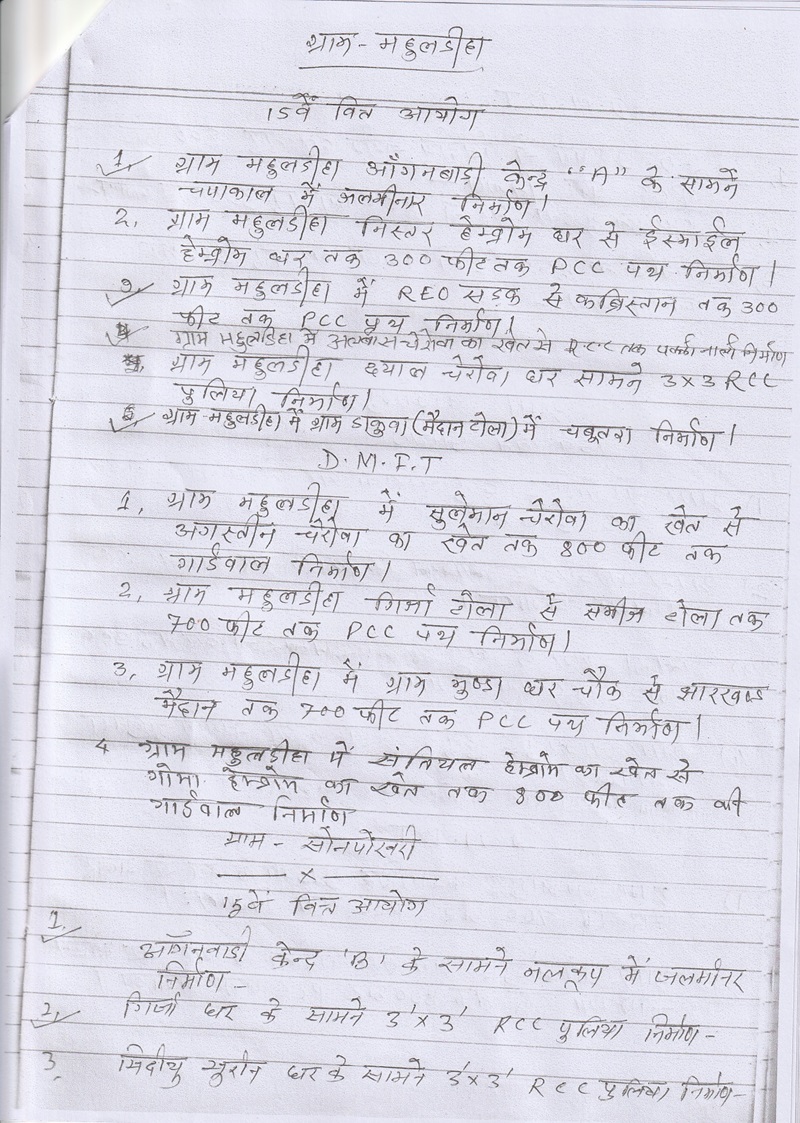 ग्राम - महुलडीहा
15वें वित्त आयोग
1. ग्राम महुलडीहा आँगनबाड़ी केन्द्र "A" के सामने
चपाकाल में जलमीनार निर्माण।
2. ग्राम महुलडीहा मिस्तर हेम्ब्रोम घर से ईस्माईल
हेम्ब्रोम घर तक 300 फीट तक PCC पथ निर्माण।
3. ग्राम महुलडीहा में REO सड़क से कब्रिस्तान तक 300
फीट तक PCC पथ निर्माण।
4. ग्राम महुलडीहा में अलवास चेरोवा का खेत से RCC तक पक्की नाली निर्माण
ग्राम महुलडीहा दयाल चेरोवा घर सामने 3x3 RCC
पुलिया निर्माण।
ग्राम महुलडीहा में ग्राम डाकुवा (मैदान टोला) में चबूतरा निर्माण।
D.M.F.T
1. ग्राम महुलडीहा में सुलेमान चेरोवा का खेत से
अगस्तीन चेरोवा का खेत तक 800 फीट तक
गार्डवाल निर्माण।
2. ग्राम महुलडीहा गिर्जा टोला से समीज टोला तक
700 फीट तक PCC पथ निर्माण।
3. ग्राम महुलडीहा में ग्राम मुण्डा घर चौक से झारखण्ड
मैदान तक 700 फीट तक PCC पथ निर्माण।
4 ग्राम महुलडीहा में संतियल हेम्ब्रोम का खेत से
गोमा हेम्ब्रोम का खेत तक 800 फीट तक की
गार्डवाल निर्माण
ग्राम - सोनपोखरी
x
15वें वित्त आयोग
1. आँगनवाडी केन्द्र 'B' के सामने नलकूप में जलमीनर
निर्माण -
2. गिर्जा घर के सामने 3'x3' RCC पुलिया निर्माण -
3. सिदीयु सुरीन घर के सामने 3'x3' RCC पुलिया निर्माण -